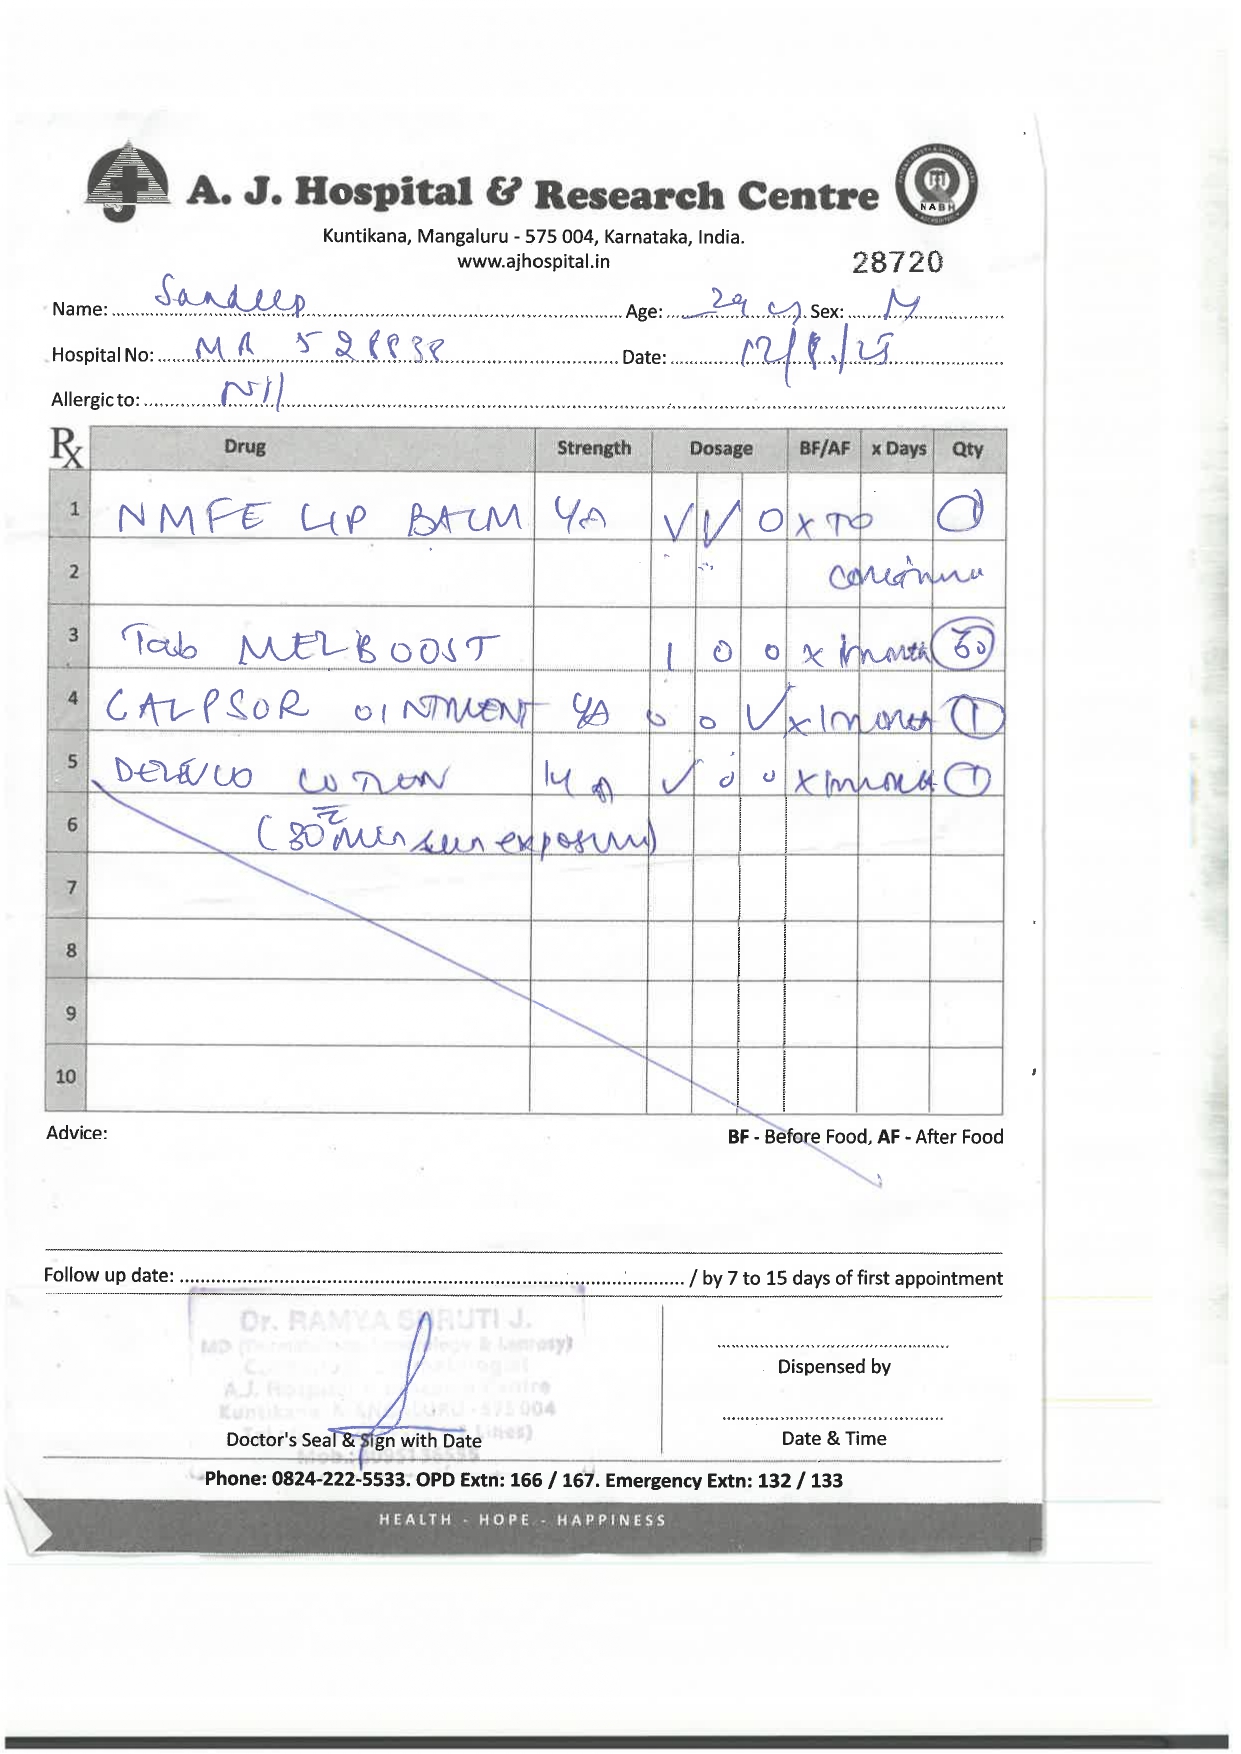 A. J. Hospital & Research Centre
NABH
Kuntikana, Mangaluru - 575 004, Karnataka, India.
www.ajhospital.in
28720
Name: Sandeep Age: 29 Sex: M
Hospital No: MR 528838 Date: 12/8/25
Allergic to: Nil
Rx Drug Strength Dosage BF/AF x Days Qty
1 NMFE LIP BALM x TO
2 continue
3 Tab MELBOOST 1 0 0 x 1 month 30
4 CALPSOR OINTMENT 0 0 ✓ x 1 month 1
5 LOTION ✓ 0 0 x 1 month 1
6 sun exposure)
7
8
9
10
Advice: BF - Before Food, AF - After Food
Follow up date: / by 7 to 15 days of first appointment
Dr. RAMYA SHRUTI J.
Dispensed by
Doctor's Seal & Sign with Date Date & Time
Phone: 0824-222-5533. OPD Extn: 166 / 167. Emergency Extn: 132 / 133
HEALTH - HOPE - HAPPINESS